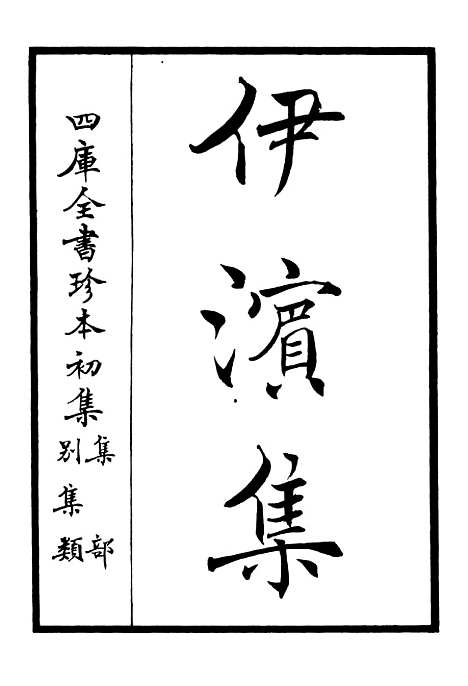 伊濵集
四庫全書珍本初集
集部
別集類